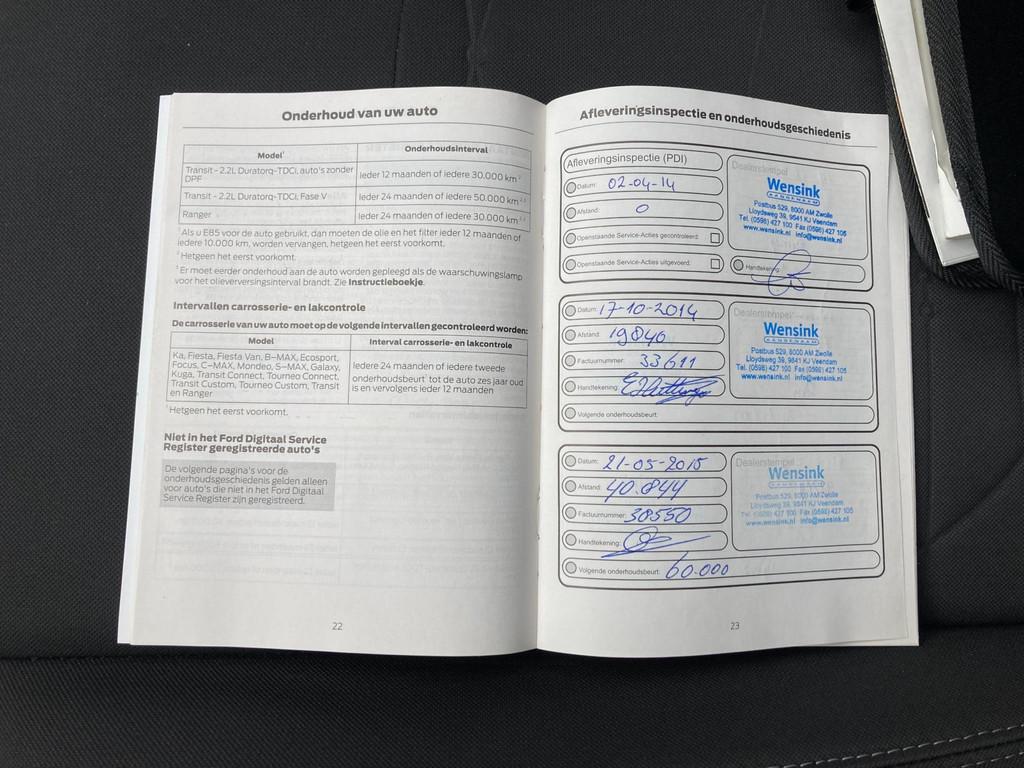 Onderhoud van uw auto
Model¹ Onderhoudsinterval
Transit - 2.2L Duratorq-TDCi, auto's zonder DPF Ieder 12 maanden of iedere 30.000 km²
Transit - 2.2L Duratorq-TDCi, Fase V Ieder 24 maanden of iedere 50.000 km²,³
Ranger Ieder 24 maanden of iedere 30.000 km²,³
¹Als u E85 voor de auto gebruikt, dan moeten de olie en het filter ieder 12 maanden of
iedere 10.000 km, worden vervangen, hetgeen het eerst voorkomt.
²Hetgeen het eerst voorkomt.
³Er moet eerder onderhoud aan de auto worden gepleegd als de waarschuwingslamp
voor het olieverversingsinterval brandt. Zie Instructieboekje.
Intervallen carrosserie- en lakcontrole
De carrosserie van uw auto moet op de volgende intervallen gecontroleerd worden:
Model Interval carrosserie- en lakcontrole
Ka, Fiesta, Fiesta Van, B-MAX, Ecosport,
Focus, C-MAX, Mondeo, S-MAX, Galaxy,
Kuga, Transit Connect, Tourneo Connect,
Transit Custom, Tourneo Custom, Transit
en Ranger
Iedere 24 maanden of iedere tweede
onderhoudsbeurt¹ tot de auto zes jaar oud
is en vervolgens ieder 12 maanden
¹Hetgeen het eerst voorkomt.
Niet in het Ford Digitaal Service
Register geregistreerde auto's
De volgende pagina's voor de
onderhoudsgeschiedenis gelden alleen
voor auto's die niet in het Ford Digitaal
Service Register zijn geregistreerd.
22
Afleveringsinspectie en onderhoudsgeschiedenis
Afleveringsinspectie (PDI)
Datum: 02-04-14
Afstand: 0
Openstaande Service-Acties gecontroleerd:
Openstaande Service-Acties uitgevoerd:
Dealerstempel
Wensink
Postbus 529, 8000 AM Zwolle
Lloydsweg 39, 9641 KJ Veendam
Tel. (0598) 427 100 Fax (0598) 427 105
www.wensink.nl info@wensink.nl
Handtekening:
Datum: 17-10-2014
Afstand: 19840
Factuurnummer: 33611
Handtekening:
Volgende onderhoudsbeurt:
Dealerstempel
Wensink
Postbus 529, 8000 AM Zwolle
Lloydsweg 39, 9641 KJ Veendam
Tel. (0598) 427 100 Fax (0598) 427 105
www.wensink.nl info@wensink.nl
Datum: 21-05-2015
Afstand: 40.844
Factuurnummer: 38550
Handtekening:
Volgende onderhoudsbeurt: 60.000
Dealerstempel
Wensink
Postbus 529, 8000 AM Zwolle
Lloydsweg 39, 9641 KJ Veendam
Tel. (0598) 427 100 Fax (0598) 427 105
www.wensink.nl info@wensink.nl
23